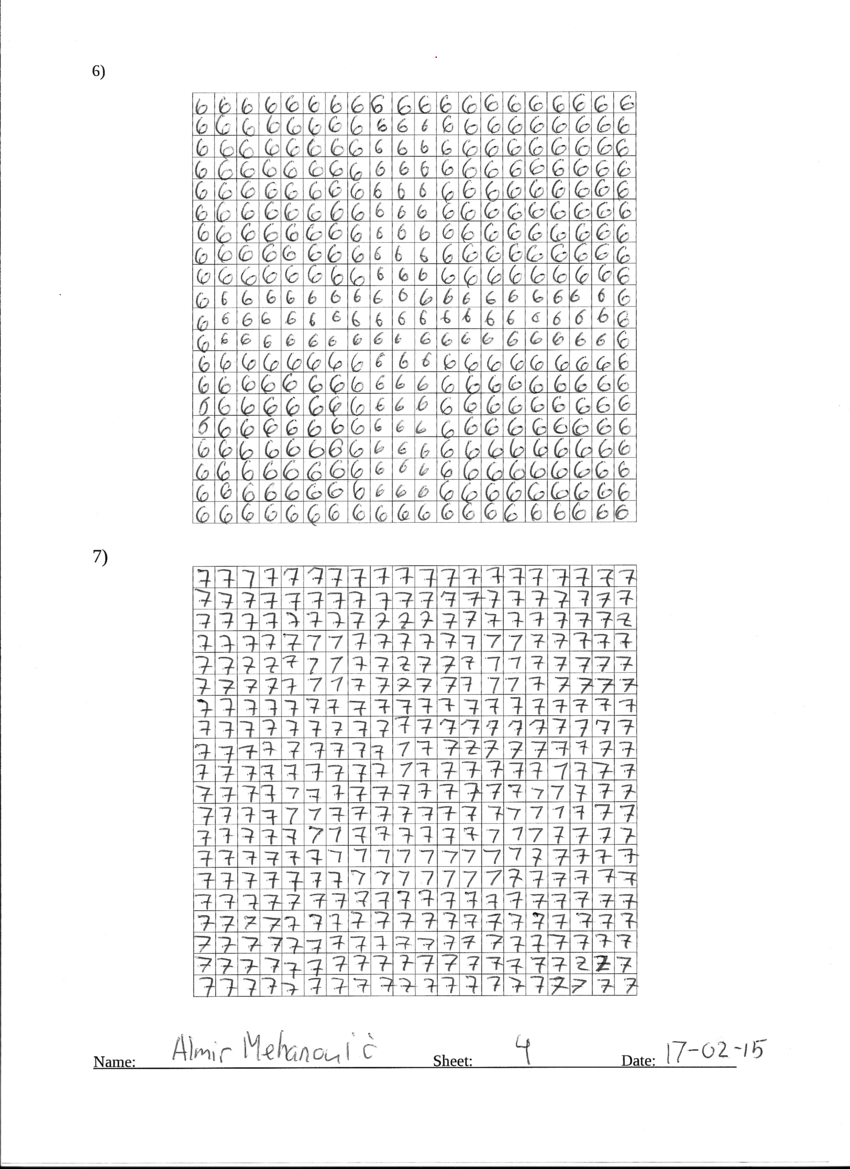 6)
6 6 6 6 6 6 6 6 6 6 6 6 6 6 6 6 6 6 6 6
6 6 6 6 6 6 6 6 6 6 6 6 6 6 6 6 6 6 6 6
6 6 6 6 6 6 6 6 6 6 6 6 6 6 6 6 6 6 6 6
6 6 6 6 6 6 6 6 6 6 6 6 6 6 6 6 6 6 6 6
6 6 6 6 6 6 6 6 6 6 6 6 6 6 6 6 6 6 6 6
6 6 6 6 6 6 6 6 6 6 6 6 6 6 6 6 6 6 6 6
6 6 6 6 6 6 6 6 6 6 6 6 6 6 6 6 6 6 6 6
6 6 6 6 6 6 6 6 6 6 6 6 6 6 6 6 6 6 6 6
6 6 6 6 6 6 6 6 6 6 6 6 6 6 6 6 6 6 6 6
6 6 6 6 6 6 6 6 6 6 6 6 6 6 6 6 6 6 6 6
6 6 6 6 6 6 6 6 6 6 6 6 6 6 6 6 6 6 6 6
6 6 6 6 6 6 6 6 6 6 6 6 6 6 6 6 6 6 6 6
6 6 6 6 6 6 6 6 6 6 6 6 6 6 6 6 6 6 6 6
6 6 6 6 6 6 6 6 6 6 6 6 6 6 6 6 6 6 6 6
6 6 6 6 6 6 6 6 6 6 6 6 6 6 6 6 6 6 6 6
6 6 6 6 6 6 6 6 6 6 6 6 6 6 6 6 6 6 6 6
6 6 6 6 6 6 6 6 6 6 6 6 6 6 6 6 6 6 6 6
6 6 6 6 6 6 6 6 6 6 6 6 6 6 6 6 6 6 6 6
6 6 6 6 6 6 6 6 6 6 6 6 6 6 6 6 6 6 6 6
6 6 6 6 6 6 6 6 6 6 6 6 6 6 6 6 6 6 6 6
7)
7 7 7 7 7 7 7 7 7 7 7 7 7 7 7 7 7 7 7 7
7 7 7 7 7 7 7 7 7 7 7 7 7 7 7 7 7 7 7 7
7 7 7 7 7 7 7 7 7 7 7 7 7 7 7 7 7 7 7 7
7 7 7 7 7 7 7 7 7 7 7 7 7 7 7 7 7 7 7 7
7 7 7 7 7 7 7 7 7 7 7 7 7 7 7 7 7 7 7 7
7 7 7 7 7 7 7 7 7 7 7 7 7 7 7 7 7 7 7 7
7 7 7 7 7 7 7 7 7 7 7 7 7 7 7 7 7 7 7 7
7 7 7 7 7 7 7 7 7 7 7 7 7 7 7 7 7 7 7 7
7 7 7 7 7 7 7 7 7 7 7 7 7 7 7 7 7 7 7 7
7 7 7 7 7 7 7 7 7 7 7 7 7 7 7 7 7 7 7 7
7 7 7 7 7 7 7 7 7 7 7 7 7 7 7 7 7 7 7 7
7 7 7 7 7 7 7 7 7 7 7 7 7 7 7 7 7 7 7 7
7 7 7 7 7 7 7 7 7 7 7 7 7 7 7 7 7 7 7 7
7 7 7 7 7 7 7 7 7 7 7 7 7 7 7 7 7 7 7 7
7 7 7 7 7 7 7 7 7 7 7 7 7 7 7 7 7 7 7 7
7 7 7 7 7 7 7 7 7 7 7 7 7 7 7 7 7 7 7 7
7 7 7 7 7 7 7 7 7 7 7 7 7 7 7 7 7 7 7 7
7 7 7 7 7 7 7 7 7 7 7 7 7 7 7 7 7 7 7 7
7 7 7 7 7 7 7 7 7 7 7 7 7 7 7 7 7 7 7 7
7 7 7 7 7 7 7 7 7 7 7 7 7 7 7 7 7 7 7 7
Name: Almir Mehanović Sheet: 4 Date: 17-02-15